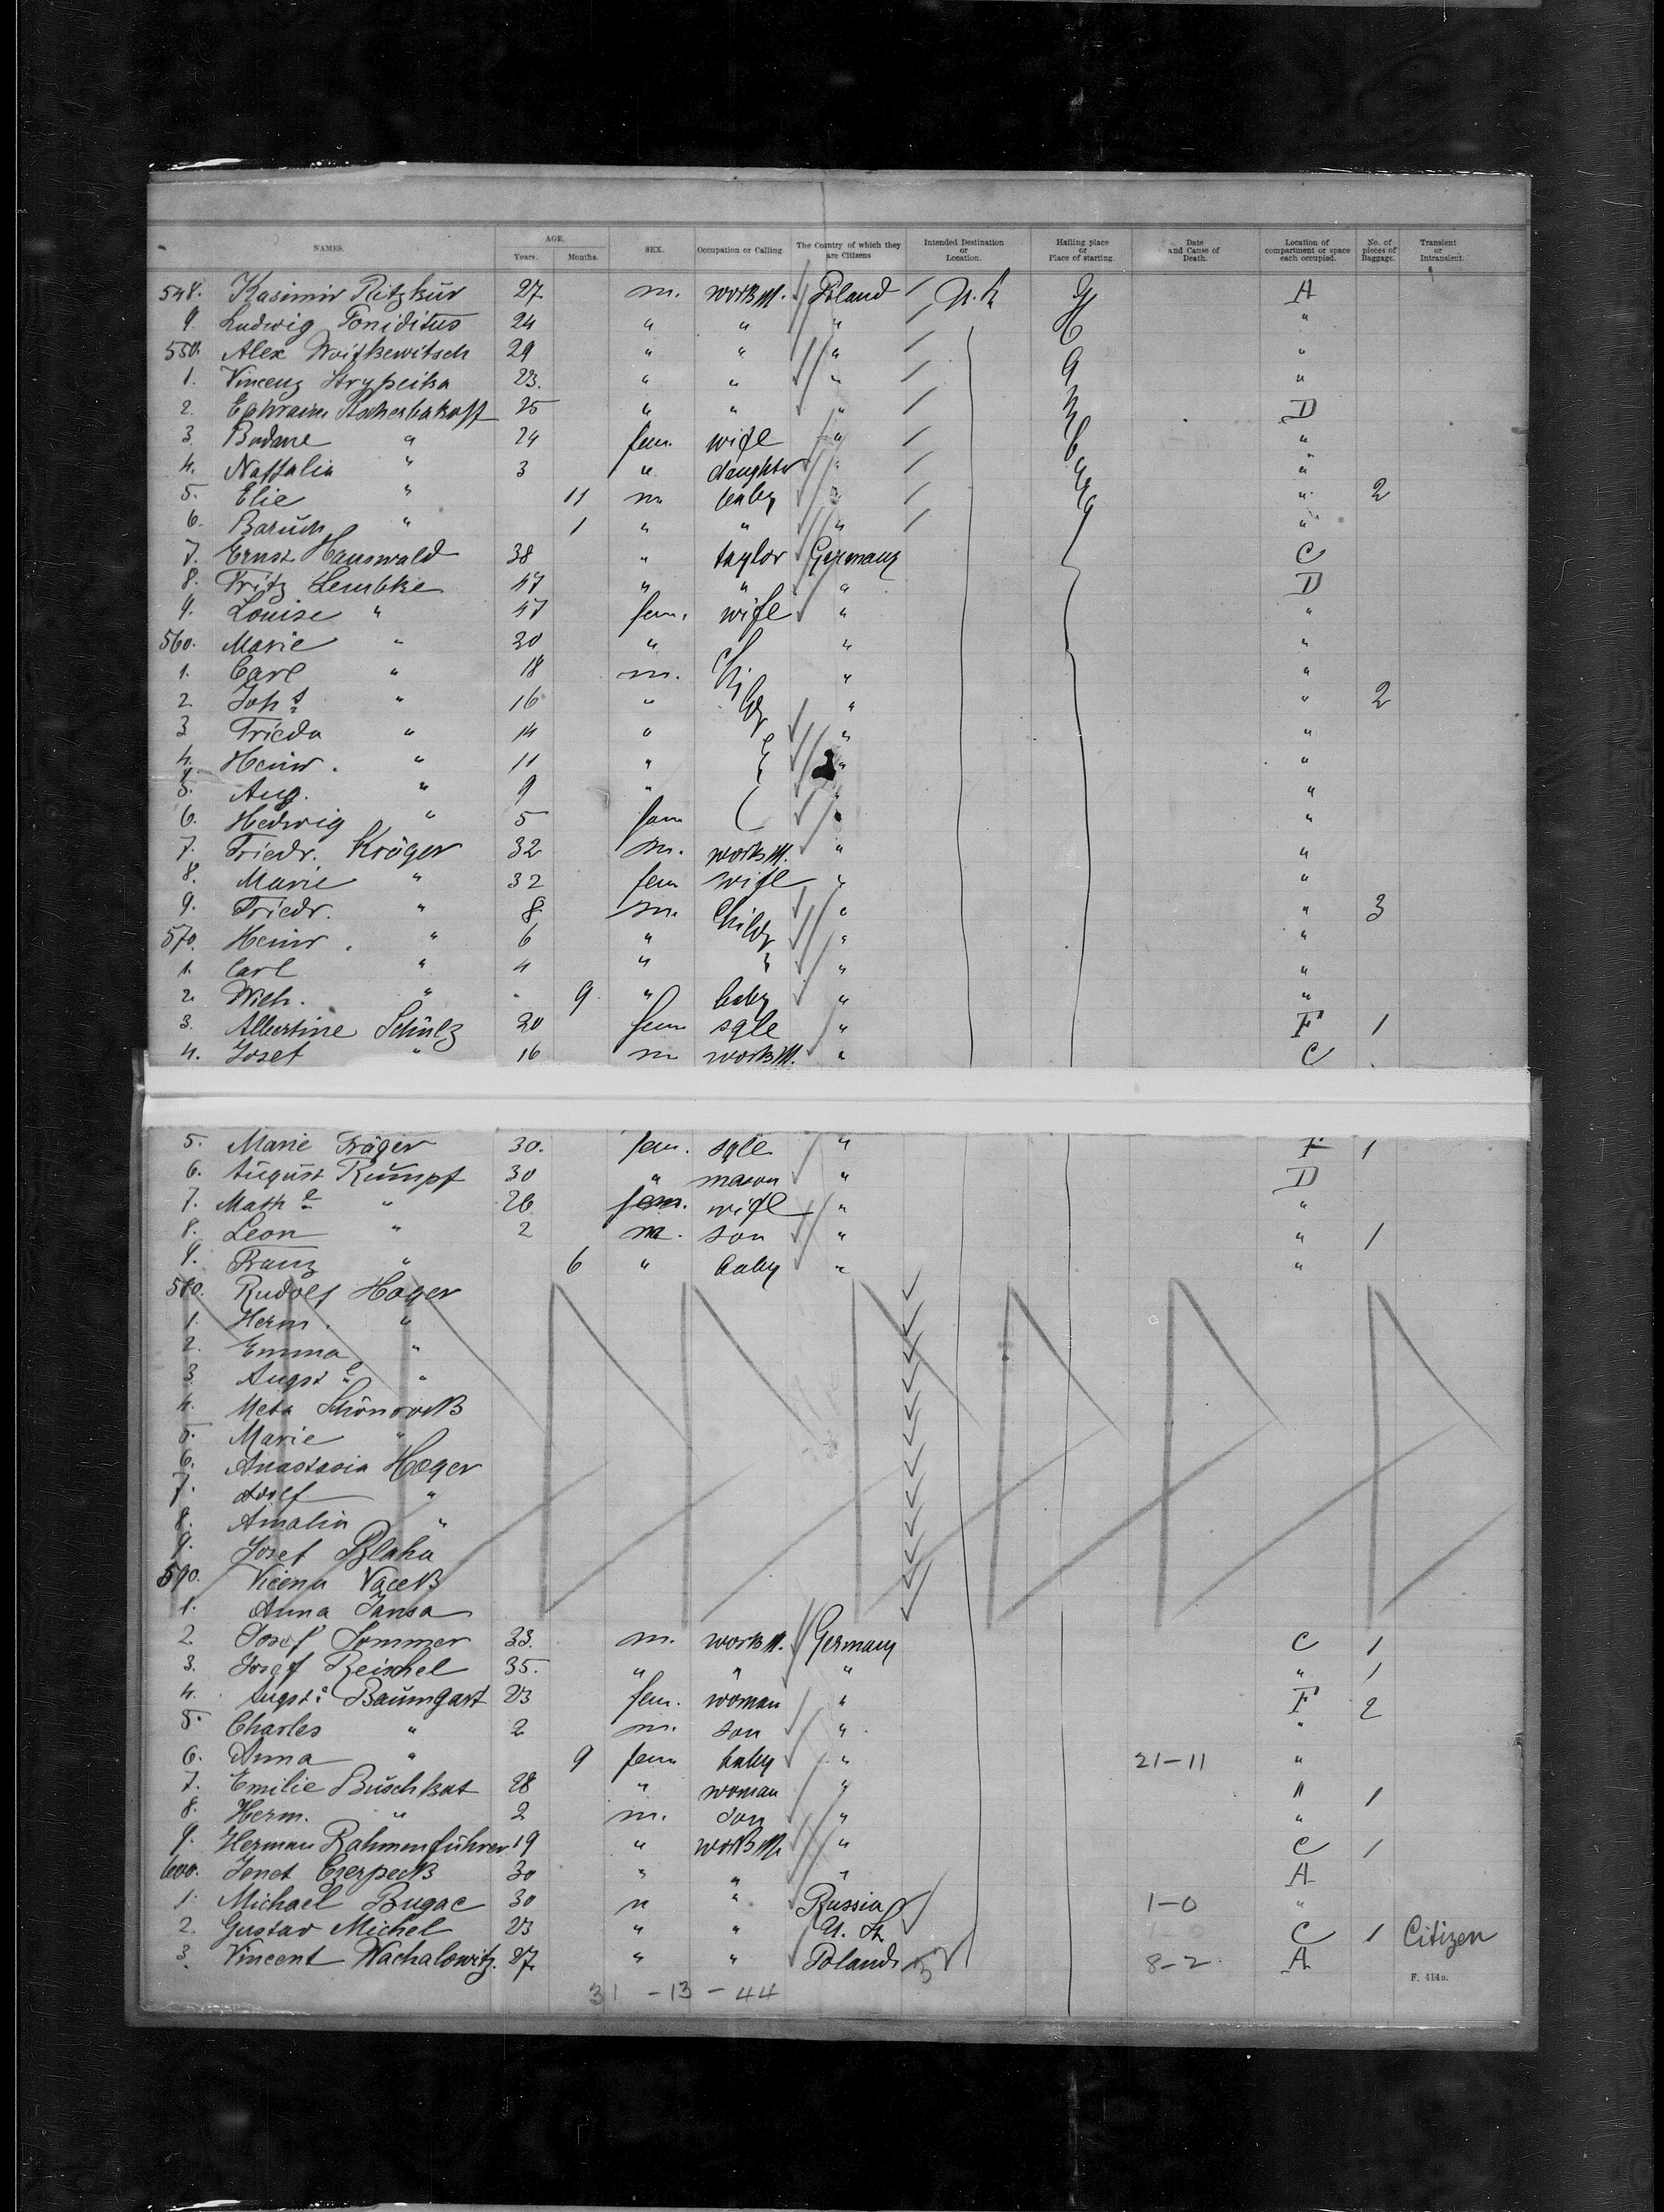 NAMES. AGE. Years. Months. SEX. Occupation or Calling. The Country of which they are Citizens Intended Destination or Location. Hailing place or Place of starting. Date and Cause of Death. Location of compartment or space each occupied. No. of pieces of Baggage. Transient or Intransient.
548. Kasimir Ritzkur 27 m. workm. Poland A
9. Ludwig Toniditus 24 " " " "
550. Alex Woitkewitsch 29 " " " "
1. Vincenz Strypeika 23. " " " "
2. Ephraim 25 " " " D
3. " 24 fem. wife " "
4. Nattalia " 3 " daughter " "
5. Elie " 11 m baby " " 2
6. Baruch " 1 " " " "
7. Ernst Hauswald 38 " taylor Germany C
8. Fritz Lembke 47 " " " D
9. Louise " 47 fem. wife " "
560. Marie " 20 " " "
1. Carl " 18 m. " "
2. Joh " 16 " " " 2
3 Frieda " 14 " " "
4. Heinr. " 11 " " "
5. Aug. " 9 " " "
6. Hedwig " 5 fem " "
7. Friedr. Kröger 32 m. workm. " "
8. Marie " 32 fem wife " "
9. Friedr. " 8 m. Childr " " 3
570. Heinr. " 6 " " "
1. Carl " 4 " " "
2. Wilh. " 9 " baby " "
3. Albertine Schulz 20 fem sgle " F 1
4. Josef " 16 m workm. " C
5. Marie Träger 30. fem. sgle " F 1
6. August Rumpf 30 " mason " D
7. Math e " 26 fem. wife " "
8. Leon " 2 m. son " " 1
9. Franz " 6 " baby " "
580. Rudolf Hager
1. Herm. "
2. Emma "
3. Augste "
4. Meta Schönrock
5. Marie "
6. Anastasia Hager
7. Adolf "
8. Amalia "
9. Josef Blaha
590. Vicena Vacek
1. Anna Jansa
2. Josef Sommer 33. m. workm. Germany C 1
3. Josef Reischel 35. " " " " 1
4. Augste Baumgart 23 fem. woman " F 2
5. Charles " 2 m. son " "
6. Anna " 9 fem baby " 21-11 "
7. Emilie Buschkat 28 " woman " " 1
8. Herm. " 2 m. son " "
9. Herman Rahmenführer 19 " workm " C 1
600. Czerpeck 30 " " " A
1. Michael Bugac 30 " " Russia 1-0 "
2. Gustav Michel 23 " " U. S. C 1 Citizen
3. Vincent Wachalowitz. 27 " " Poland 8-2. A
F. 414a.
31 - 13 - 44